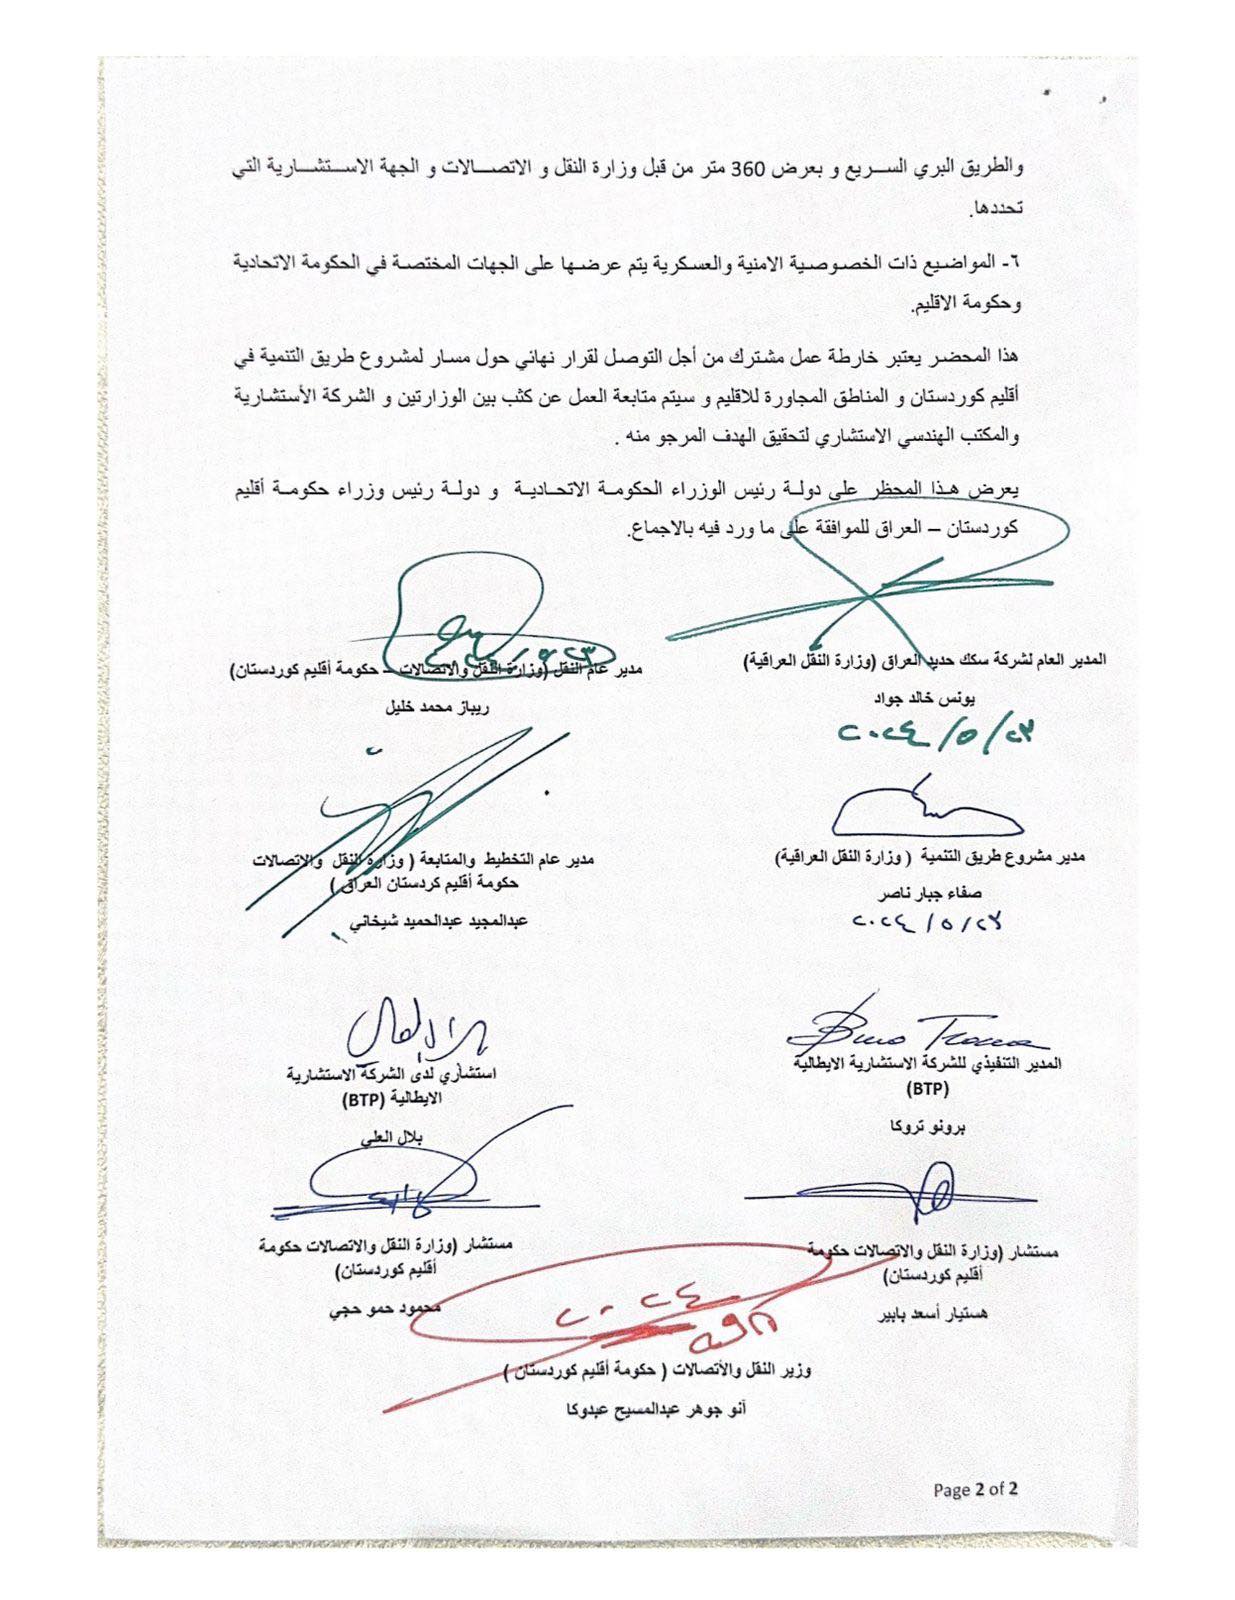 والطريق البري السريع و بعرض 360 متر من قبل وزارة النقل و الاتصالات و الجهة الاستشارية التي
تحددها.
٦- المواضيع ذات الخصوصية الامنية والعسكرية يتم عرضها على الجهات المختصة في الحكومة الاتحادية
وحكومة الاقليم.
هذا المحضر يعتبر خارطة عمل مشترك من أجل التوصل لقرار نهائي حول مسار لمشروع طريق التنمية في
أقليم كوردستان و المناطق المجاورة للاقليم و سيتم متابعة العمل عن كثب بين الوزارتين و الشركة الأستشارية
والمكتب الهندسي الاستشاري لتحقيق الهدف المرجو منه .
يعرض هذا المحظر على دولة رئيس الوزراء الحكومة الاتحادية و دولة رئيس وزراء حكومة أقليم
كوردستان – العراق للموافقة على ما ورد فيه بالاجماع.
المدير العام لشركة سكك حديد العراق (وزارة النقل العراقية)
يونس خالد جواد
٢٠٢٤/٥/٢٣
مدير عام النقل (وزارة النقل والاتصالات – حكومة أقليم كوردستان)
ريباز محمد خليل
مدير مشروع طريق التنمية ( وزارة النقل العراقية)
صفاء جبار ناصر
٢٠٢٤/٥/٢٣
مدير عام التخطيط والمتابعة ( وزارة النقل والاتصالات
حكومة أقليم كردستان العراق )
عبدالمجيد عبدالحميد شيخاني
المدير التنفيذي للشركة الاستشارية الايطالية
(BTP)
برونو تروكا
استشاري لدى الشركة الاستشارية
الايطالية (BTP)
بلال العلي
مستشار (وزارة النقل والاتصالات حكومة
أقليم كوردستان)
هستيار أسعد بابير
مستشار (وزارة النقل والاتصالات حكومة
أقليم كوردستان)
محمود حمو حجي
وزير النقل والأتصالات ( حكومة أقليم كوردستان )
آنو جوهر عبدالمسيح عبدوكا
Page 2 of 2